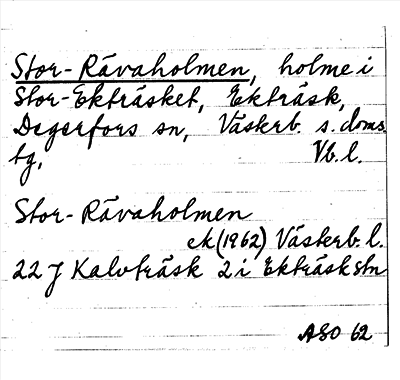 Stor-Rävaholmen, holme i
Stor-Ekträsket, Ekträsk,
Degerfors sn, Västerb. s. doms
tg, Vb. l.
Stor-Rävaholmen
ek (1962) Västerb. l.
22 J Kalvträsk 2 i Ekträsk stn
ASO 62